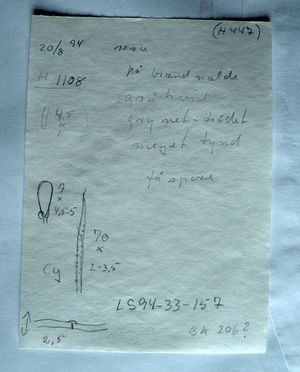 (H447)
20/8 94 resu
H 1108 på brændnælde
4,5 x grå hvid
grynet-trådet
meget tynd
få spore
9 x 4,5-5
70 x 2-3,5
Cy
LS94-33-157
2,5 BA 206?